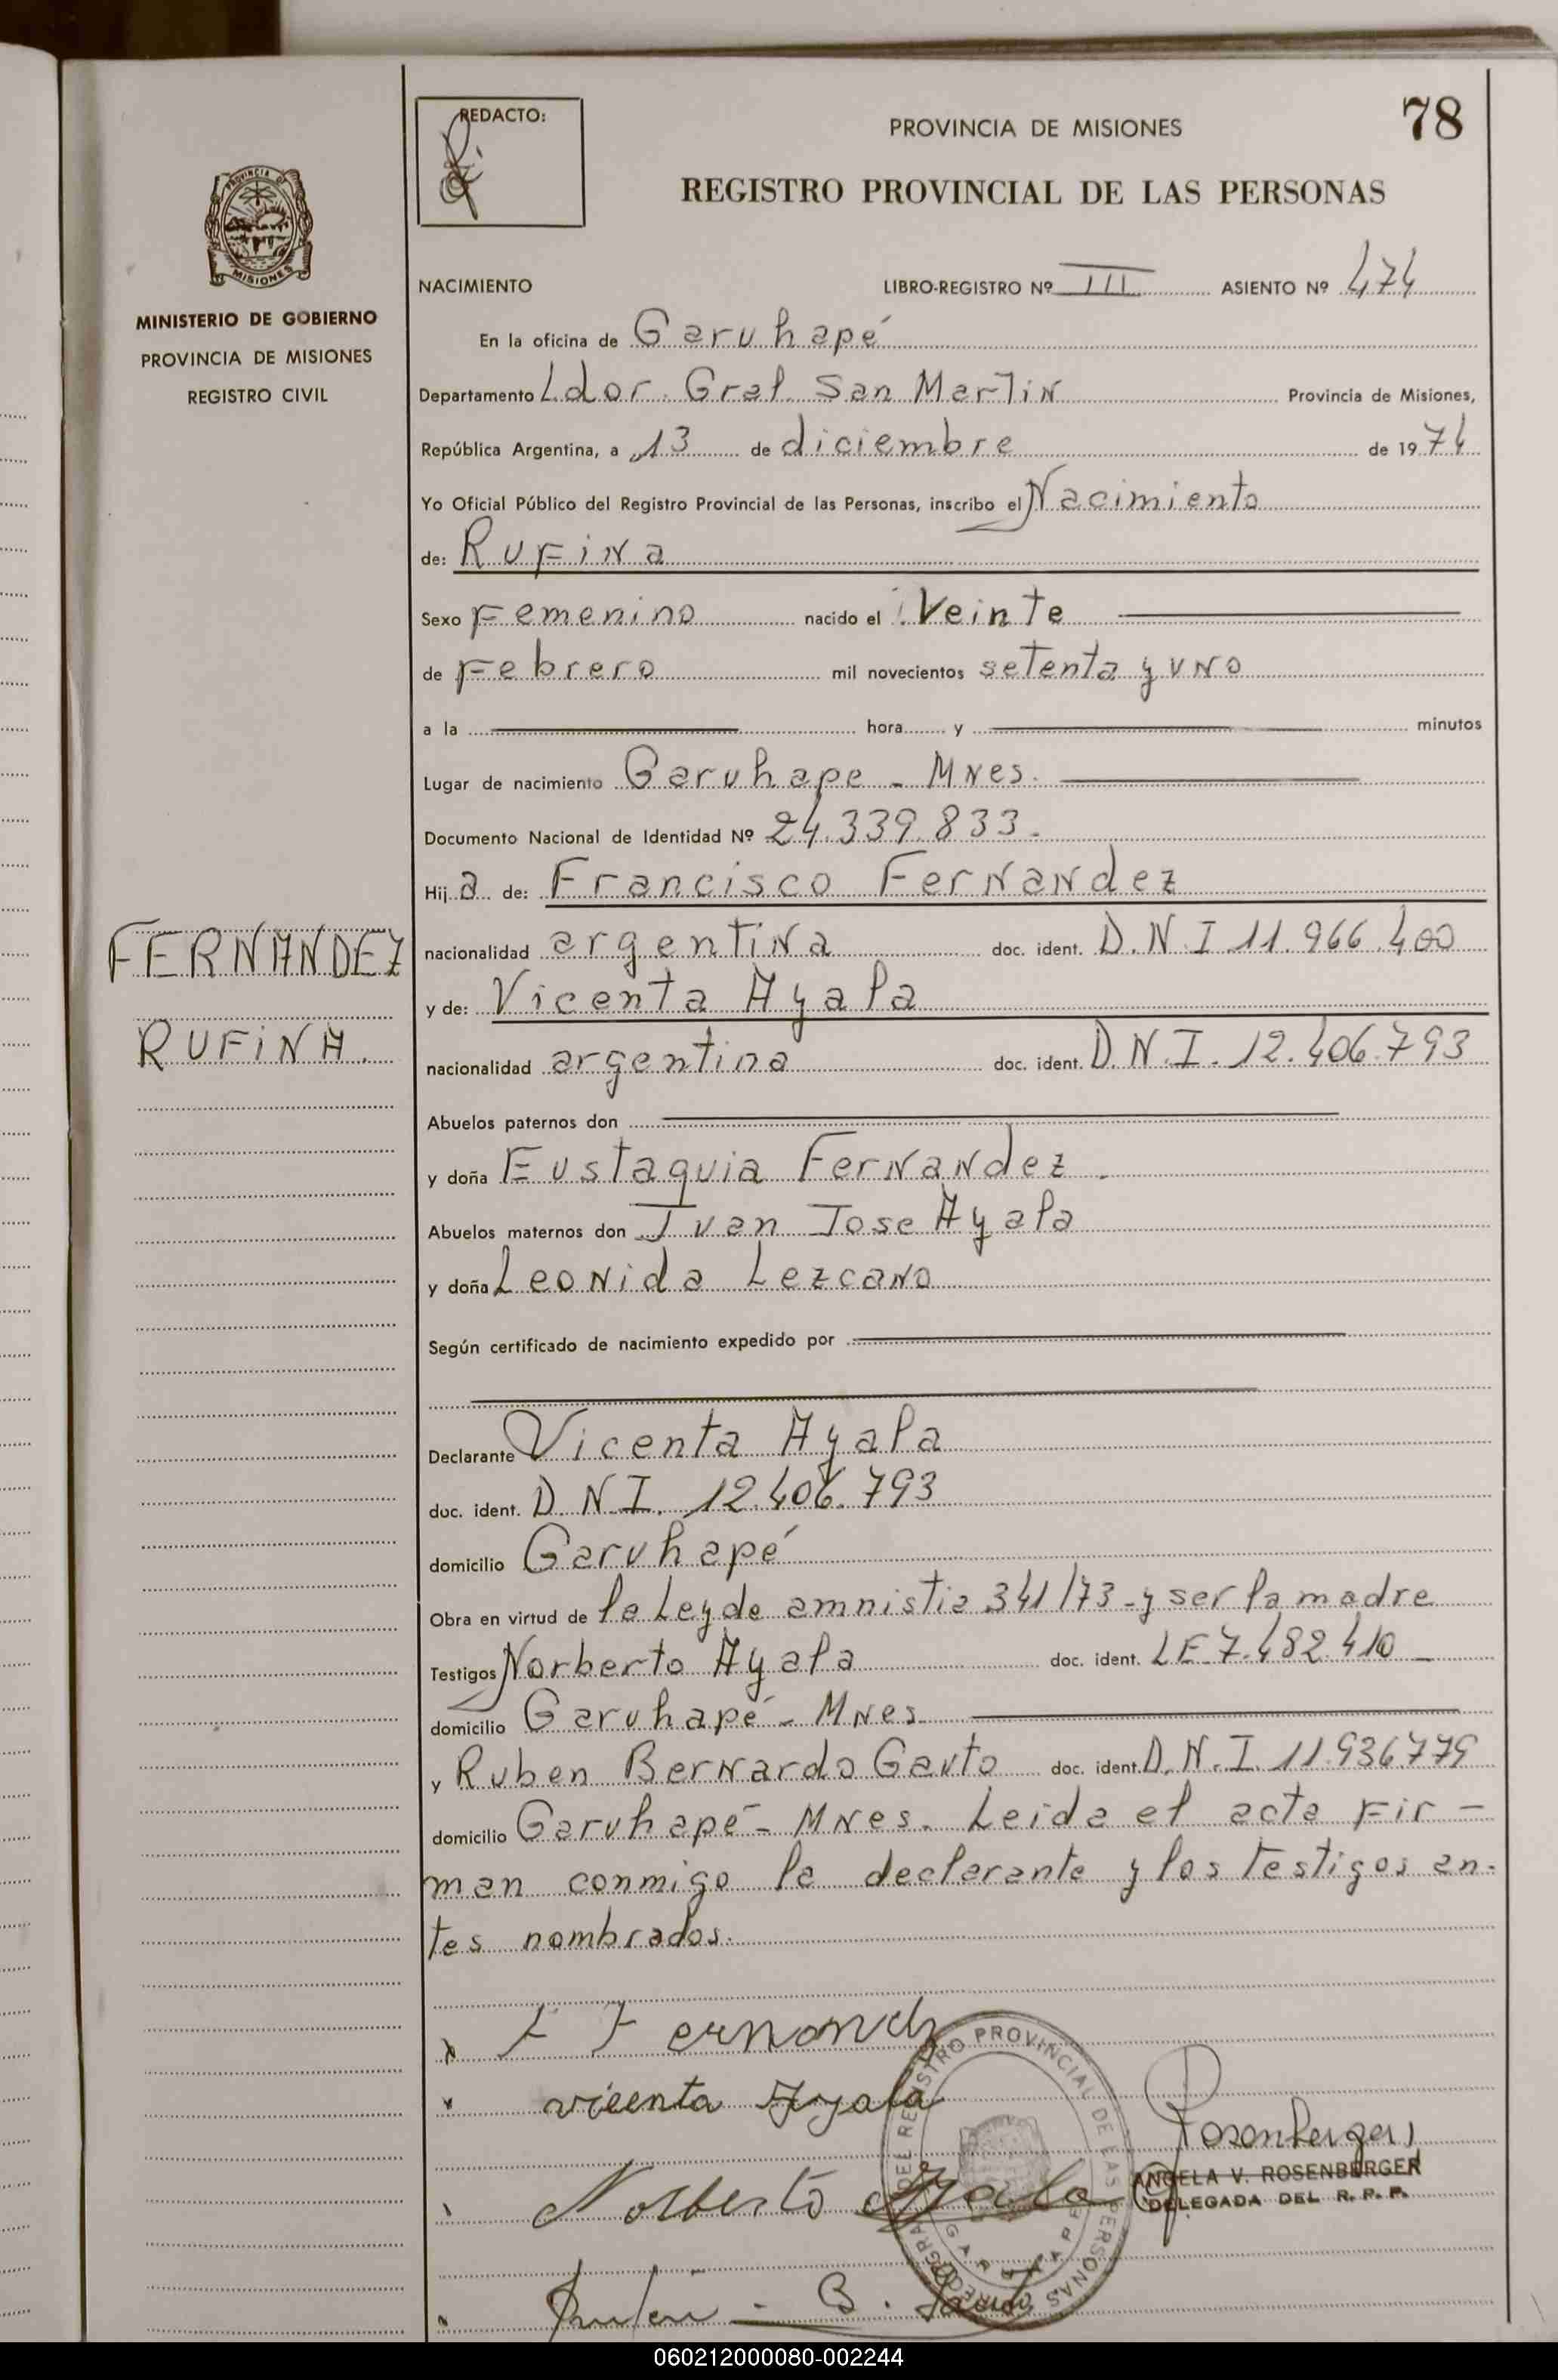 REDACTO:
PROVINCIA DE MISIONES
78
REGISTRO PROVINCIAL DE LAS PERSONAS
PROVINCIA DE
MISIONES
MINISTERIO DE GOBIERNO
PROVINCIA DE MISIONES
REGISTRO CIVIL
NACIMIENTO LIBRO-REGISTRO Nº III ASIENTO Nº 474
En la oficina de Garuhapé
Departamento Ldor. Gral San Martin Provincia de Misiones,
República Argentina, a 13 de diciembre de 1974
Yo Oficial Público del Registro Provincial de las Personas, inscribo el Nacimiento
de: Rufina
Sexo Femenino nacido el Veinte
de Febrero mil novecientos setenta y uno
a la hora y minutos
Lugar de nacimiento Garuhape - Mnes.
Documento Nacional de Identidad Nº 24.339.833.
Hija de: Francisco Fernandez
FERNANDEZ
nacionalidad argentina doc. ident. D.N.I 11.966.400
y de: Vicenta Ayala
RUFINA.
nacionalidad argentina doc. ident. D.N.I. 12.406.793
Abuelos paternos don
y doña Eustaquia Fernandez.
Abuelos maternos don Juan Jose Ayala
y doña Leonida Lezcano
Según certificado de nacimiento expedido por
Declarante Vicenta Ayala
doc. ident. D.N.I. 12.406.793
domicilio Garuhapé
Obra en virtud de la Ley de amnistia 341/73 - y ser la madre
Testigos Norberto Ayala doc. ident. LE 7.482.410
domicilio Garuhapé - Mnes
y Ruben Bernardo Gauto doc. ident. D.N.I. 11.936.779
domicilio Garuhapé - Mnes. Leida el acta Fir-
man conmigo la declarante y los testigos an-
tes nombrados.
F Fernandez
vicenta Ayala
Rosenberger
ANGELA V. ROSENBERGER
DELEGADA DEL R. P. P.
Norberto Ayala
Ruben - B. Gauto
DEL REGISTRO PROVINCIAL DE LAS PERSONAS
GARUHAPE
060212000080-002244